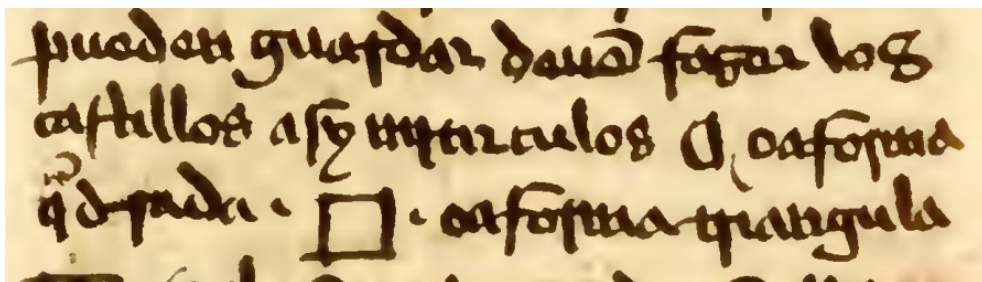 pueden guardar deuē fazer los
castillos a symjtirculos ¶ o a forma
q̄drada · □ · o a forma triangula